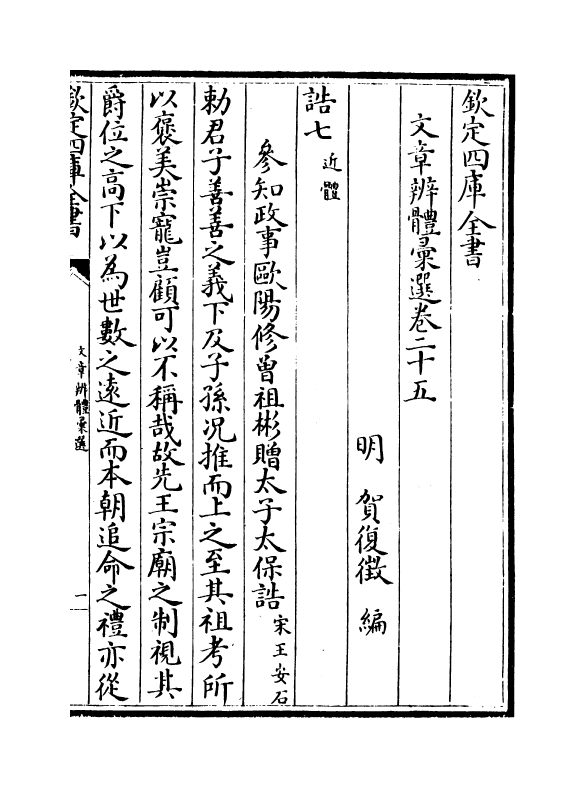 欽定四庫全書
文章辨體彚選卷二十五
明 賀復徵 編
誥七 近體
參知政事歐陽修曾祖彬贈太子太保誥 宋王安石
勅君子善善之義下及子孫况推而上之至其祖考所
以褒美崇寵豈顧可以不稱哉故先王宗廟之制視其
爵位之高下以為世數之遠近而本朝追命之禮亦從
欽定四庫全書
文章辨體彚選
一